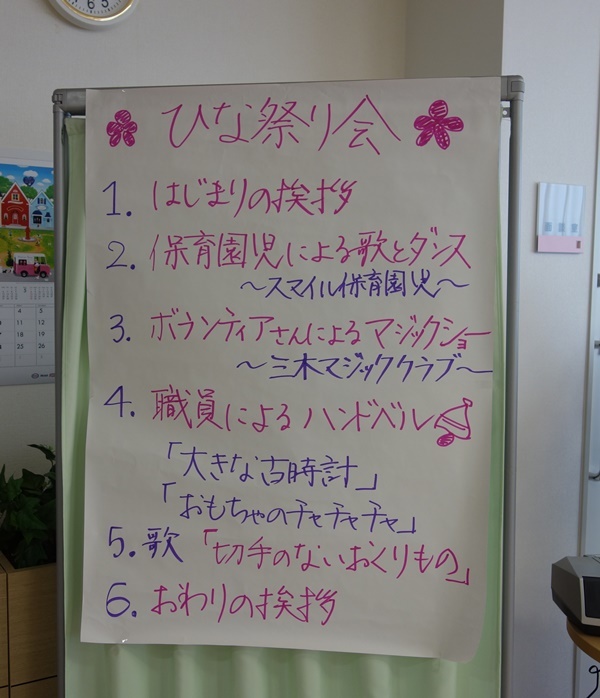 ひな祭り会
1. はじまりの挨拶
2. 保育園児による歌とダンス
～スマイル保育園児～
3. ボランティアさんによるマジックショー
～三木マジッククラブ～
4. 職員によるハンドベル
「大きな古時計」
「おもちゃのチャチャチャ」
5. 歌「切手のないおくりもの」
6. おわりの挨拶